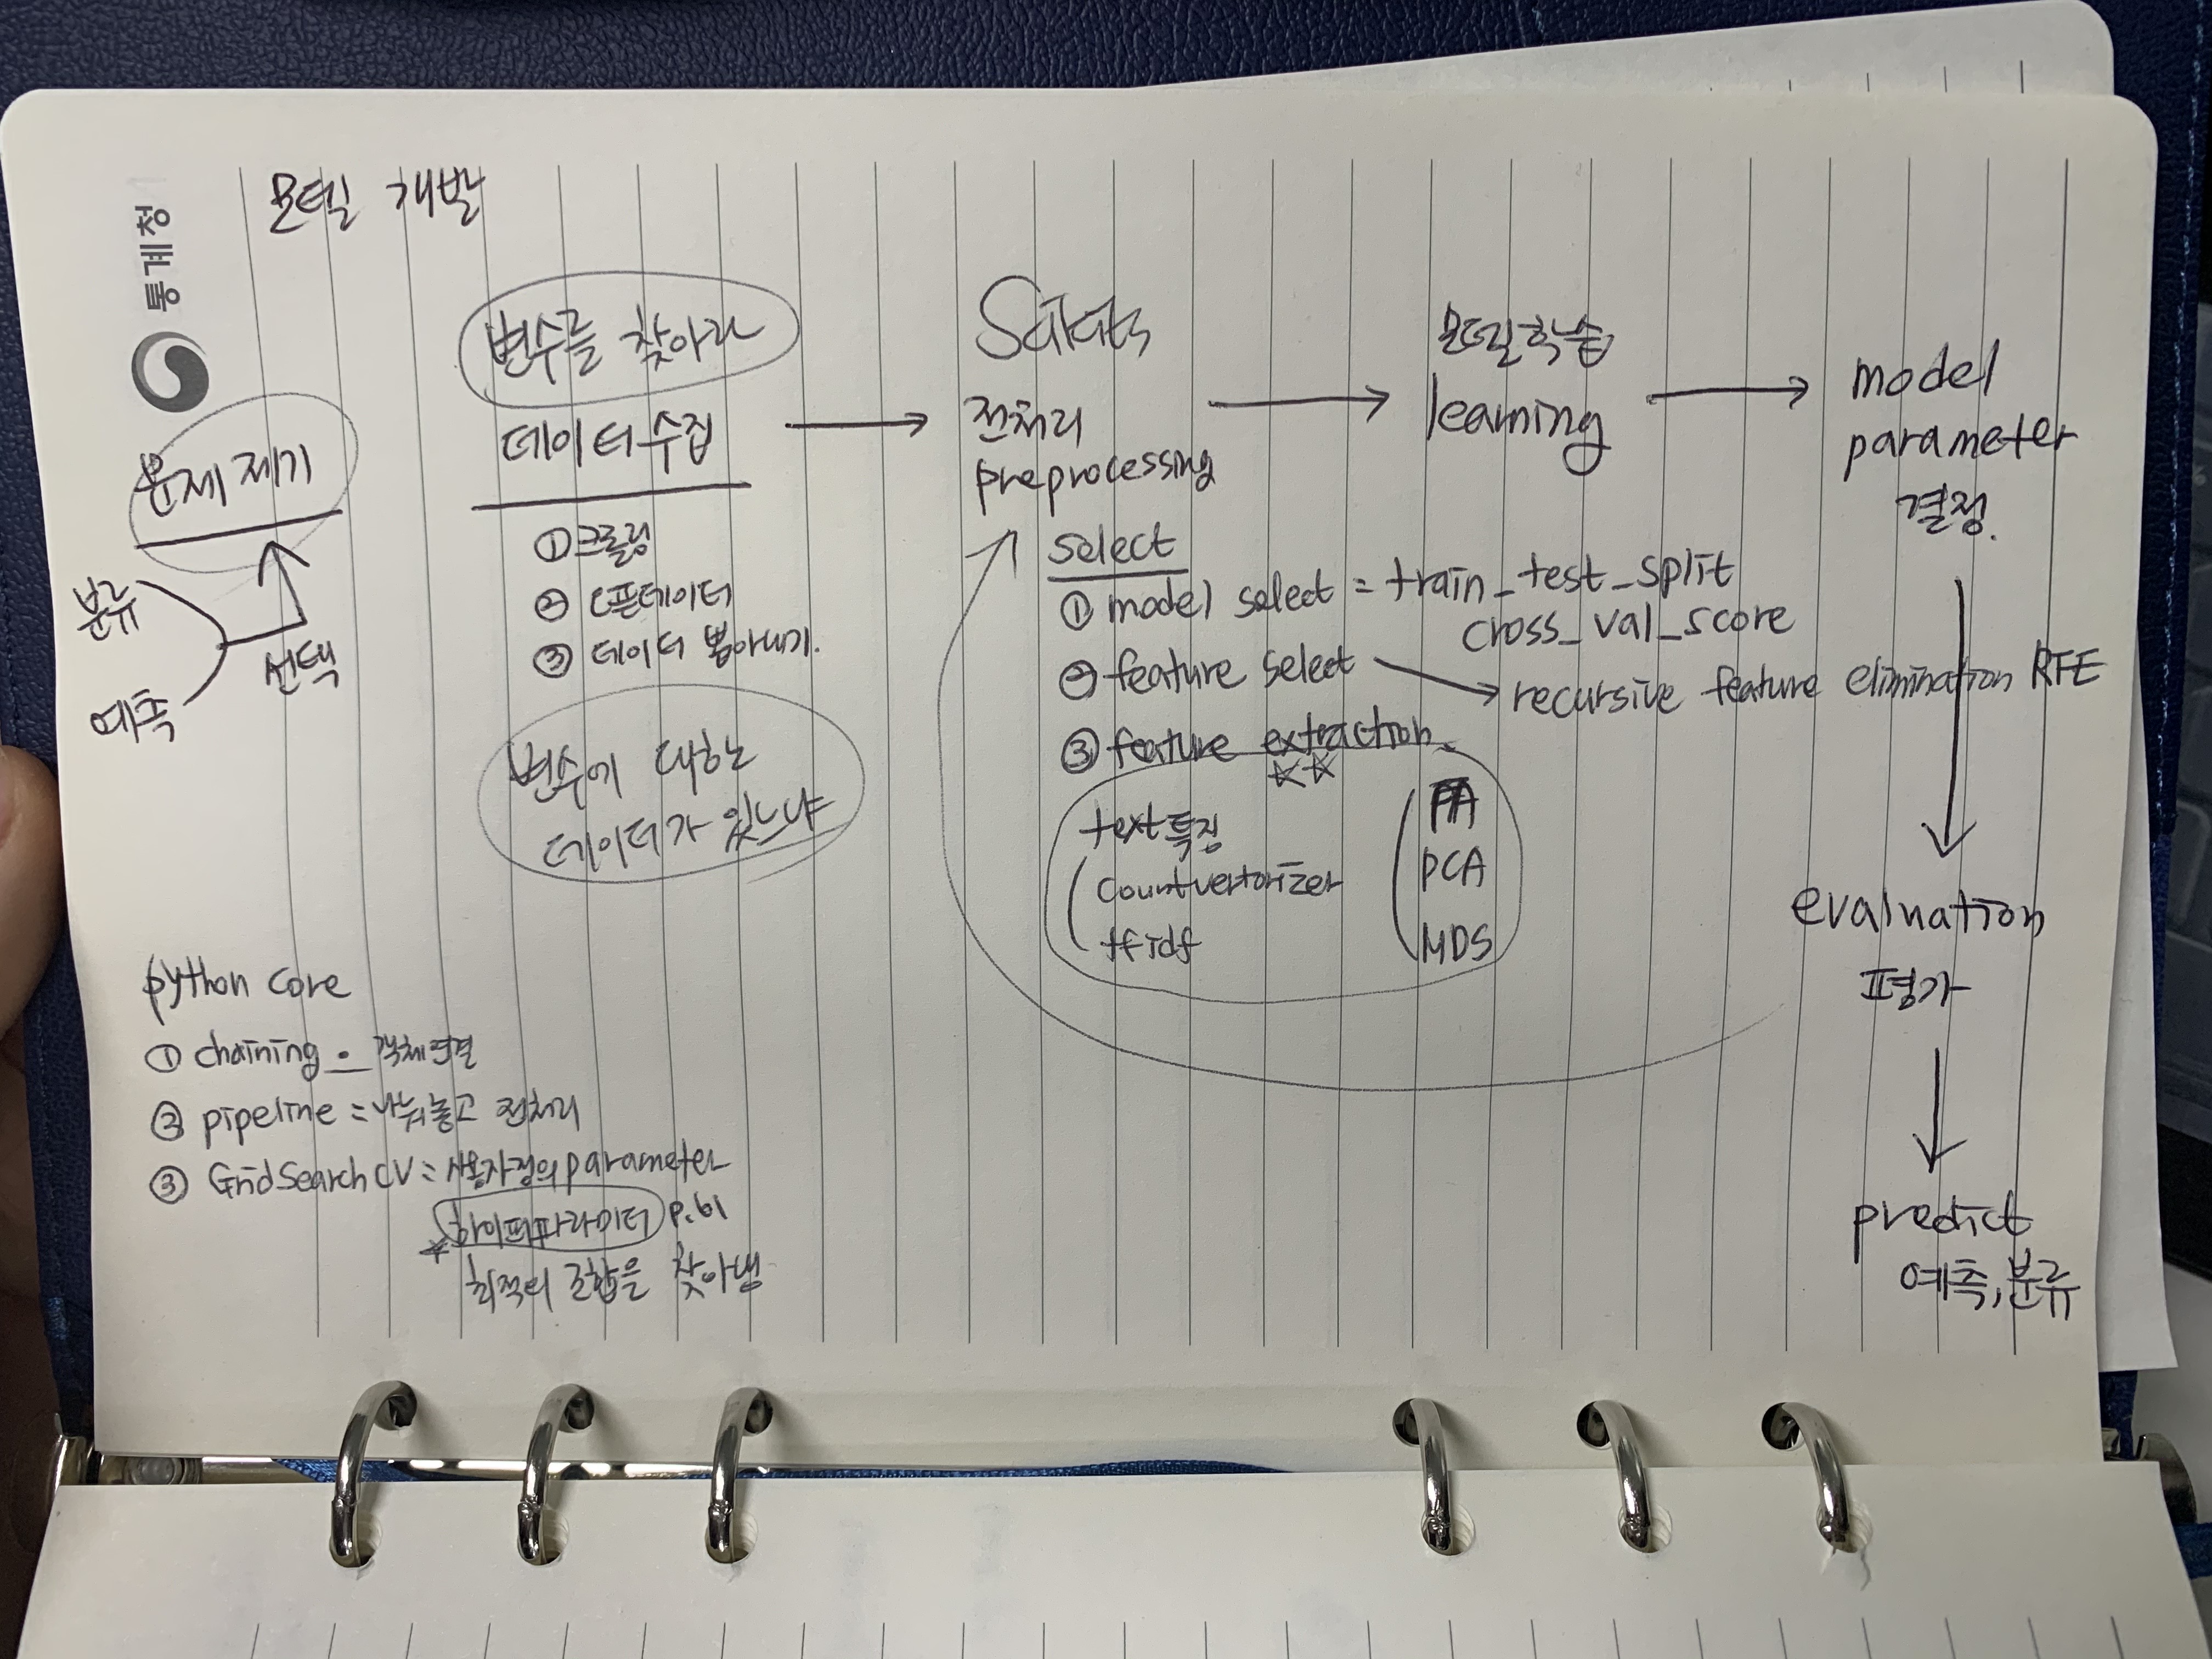 통계청
모델 개발
문제 제기
분류
예측
선택
변수를 찾아라
데이터 수집
① 크롤링
② 오픈데이터
③ 데이터 붙이기.
변수에 대한
데이터가 있느냐
Scikits
전처리
preprocessing
select
① model select = train_test_split
cross_val_score
② feature select → recursive feature elimination RFE
③ feature extraction
text특징
countvectorizer
tfidf
FA
PCA
MDS
모델 학습
learning
model
parameter
결정.
evaluation
평가
predict
예측, 분류
python core
① chaining : 객체연결
② pipeline = 바꿔놓고 전처리
③ GridSearchCV = 사용자정의 parameter
*하이퍼파라미터 p.161
최적의 값을 찾아냄